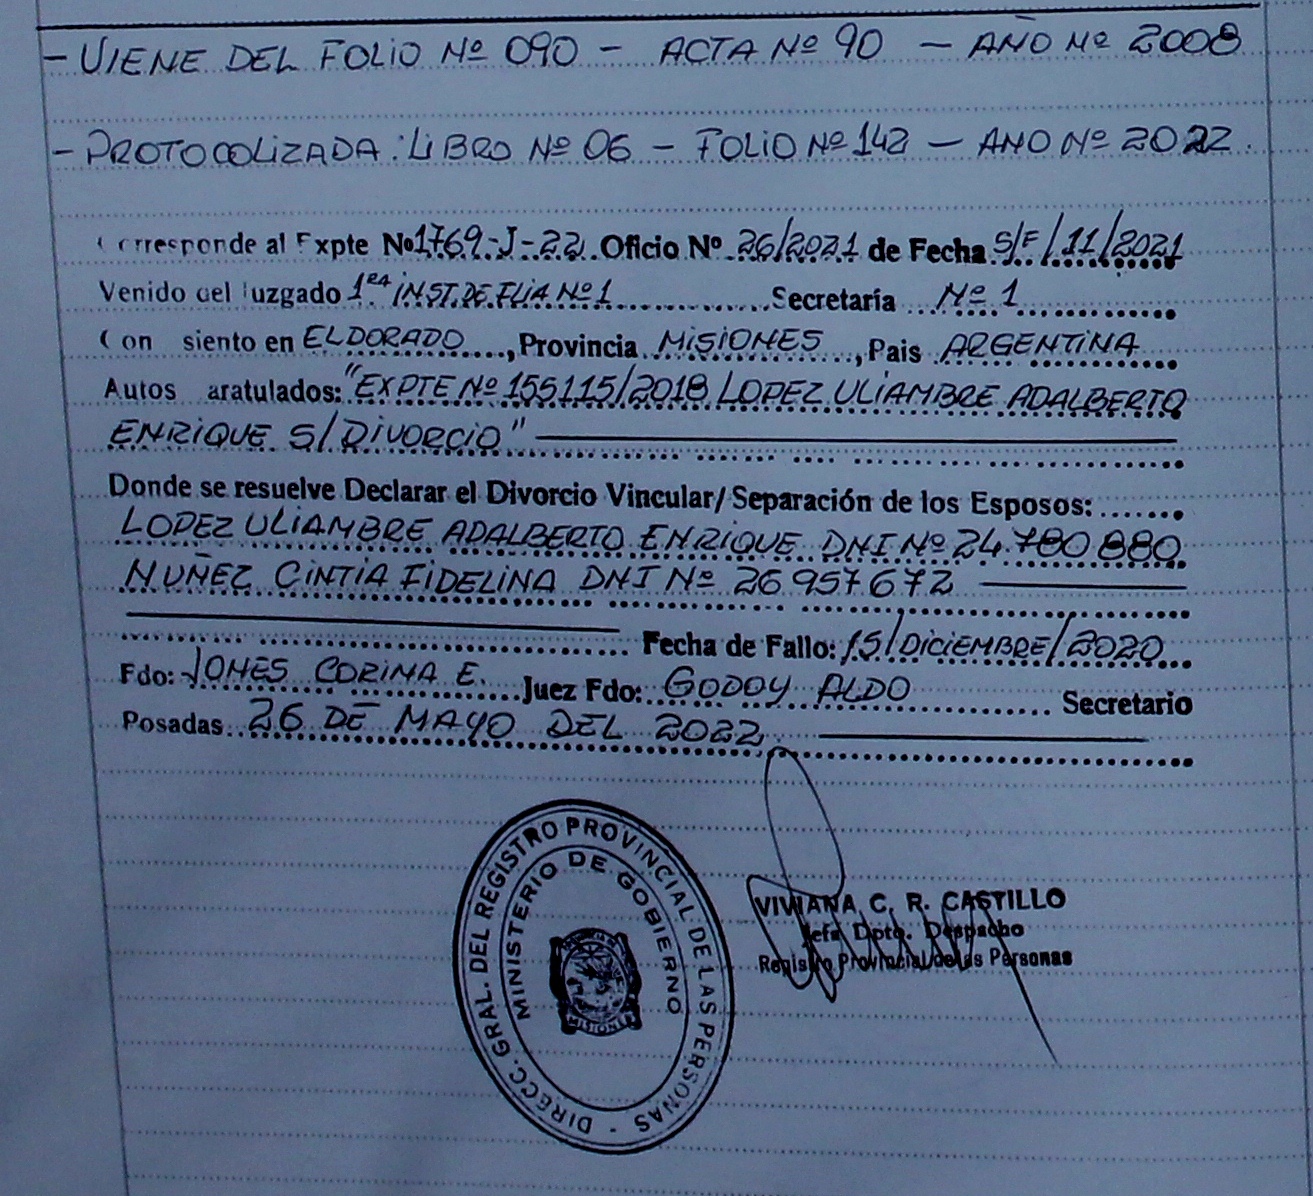 - VIENE DEL FOLIO Nº 090 - ACTA Nº 90 - AÑO Nº 2008
- PROTOCOLIZADA: LIBRO Nº 06 - FOLIO Nº 142 - AÑO Nº 2022.
Corresponde al Expte Nº 1769-J-22. Oficio Nº 26/2021 de Fecha S/F/11/2021
Venido del Juzgado 1ra INST. DE FLIA Nº 1 Secretaría Nº 1
Con siento en ELDORADO, Provincia MISIONES, Pais ARGENTINA
Autos aratulados: "EXPTE Nº 155115/2018 LOPEZ ULIAMBRE ADALBERTO
ENRIQUE S/DIVORCIO"
Donde se resuelve Declarar el Divorcio Vincular/Separación de los Esposos:
LOPEZ ULIAMBRE ADALBERTO ENRIQUE DNI Nº 24.780.880
NUÑEZ CINTIA FIDELINA DNI Nº 26957672
Fecha de Fallo: 15/DICIEMBRE/2020
Fdo: JONES CORINA E. Juez Fdo: GODOY ALDO Secretario
Posadas 26 DE MAYO DEL 2022
DIRECC. GRAL. DEL REGISTRO PROVINCIAL DE LAS PERSONAS -
MINISTERIO DE GOBIERNO
MISIONES
VIVIANA C. R. CASTILLO
Jefa Dpto. Despacho
Registro Provincial de las Personas